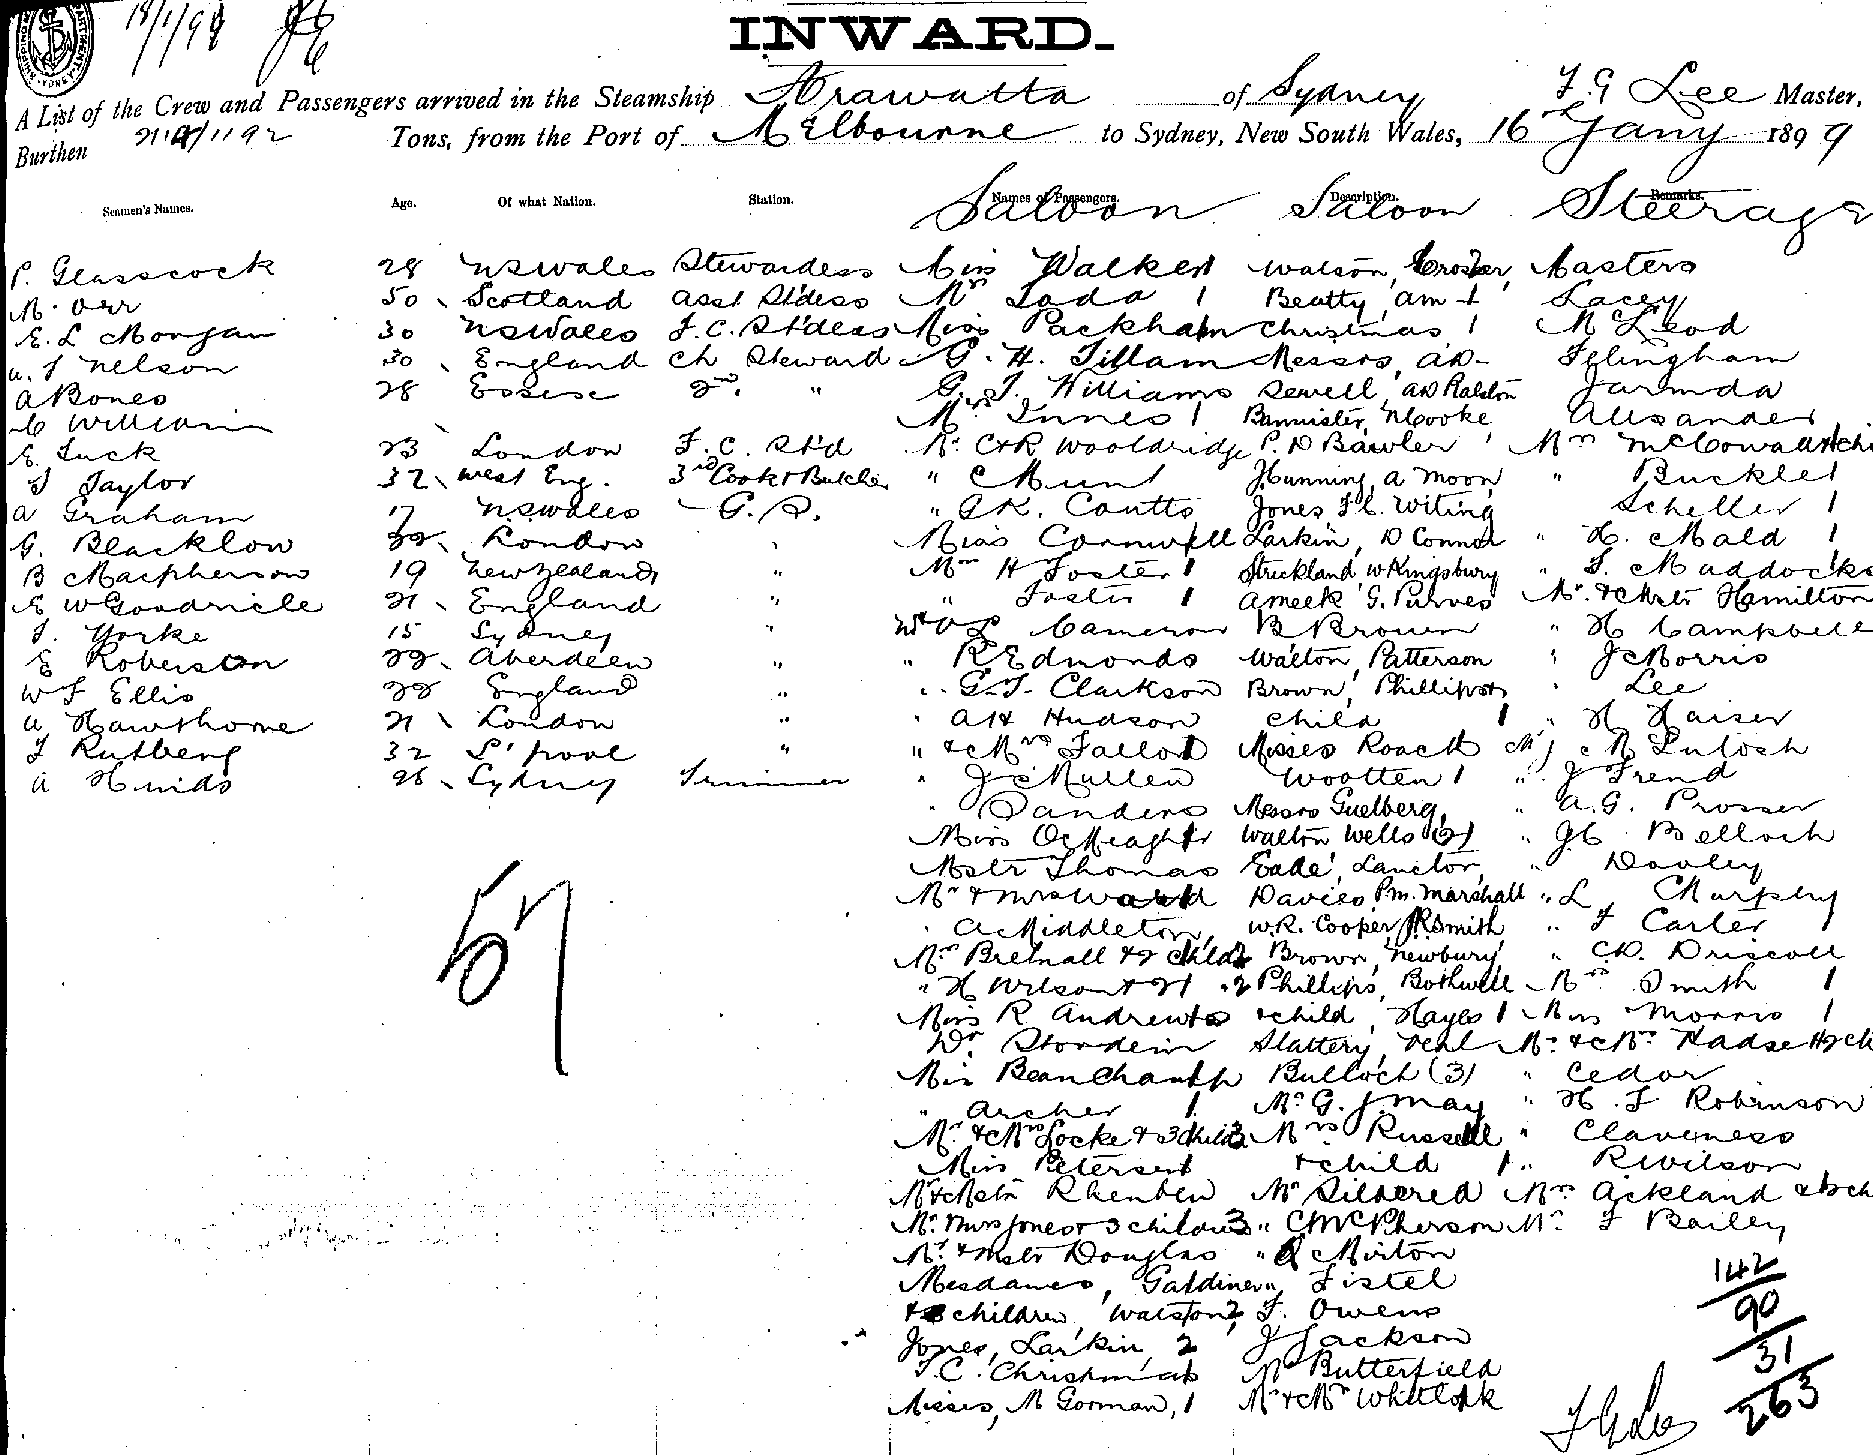 18/1/99
INWARD.
A List of the Crew and Passengers arrived in the Steamship Arawatta of Sydney F. G Lee Master,
Burthen 2114/1192 Tons, from the Port of Melbourne to Sydney, New South Wales, 16th Jany 1899
Seamen's Names. Age. Of what Nation. Station. Names of Passengers. Description. Remarks.
Saloon Saloon Steerage
P. Glasscock 28 NSWales Stewardess Miss Walker 1 Watson, Masters
M. Orr 50 Scotland Asst St'dess Mrs 1 Beatty, Lacey
E. L Morgan 30 NSWales F.C. St'dess Miss Packham Christmas 1 McLeod
Nelson 30 England Ch Steward G. H. Tillam Messrs,
A Bones 28 Essex 2nd " G. T. Williams Sewell, Ralston Jarmda
Williams Mrs Innes 1 Bannister, Cooke Alexander
E. Tuck 23 London F. C. St'd Mr C & R Wooldridge P. D Bawler Mrs McCowan
Taylor 32 West Eng. 3rd Cook & Butcher " C Munt Gunning, A Moon, " Buckle 1
A Graham 17 N.S.Wales G.S. " G K. Coutts Jones Witing Scheller 1
G. Blacklow London Miss Cornwell Larkin, D Connor " H. Mald 1
B Macpherson 19 New Zealand " Mrs H Foster 1 Strickland, W Kingsbury " Maddocks
E W Goodricke 21 England " " Foster 1 A Meek G. Purves Mr. & Mstr Hamilton
Yorke 15 Sydney " Cameron B Brown " H Campbell
E Roberston 22 Aberdeen " " R Edmonds Walton, Patterson " J Morris
W F Ellis 22 England " " G. T. Clarkson Brown, Phillips " Lee
A Hawthorne 21 London " " A H Hudson Child 1 " H Kaiser
Rutberg 32 L'pool " " & Mrs Fallon 1 Misses Roach McIntosh
A Hinds 26 Sydney Trimmer " J McMullen Wootten 1 " J Frend
" Sanders Messrs Guelberg, " A. G. Prosser
Miss O'Meagher Walton Wells (2) " Belloch
Mstr Thomas Eade, Lancton, " Dooley
Mr & Mrs Ward Davies, P.M. Marshall " L Murphy
" A Middleton, W. R. Cooper, Smith " Carter
Mrs Bretnall & 2 child 2 Brown, Newbury, " Driscoll
" H Wilson & 2 Phillips, Bothwell Mrs Smith 1
Miss R Andrews & child, Hayes 1 Miss Morris 1
Dr Slattery, Mr. & Mrs Hadse
Miss Beauchamp Bulloch (3) " Cedor
" Archer 1 Mr G. J. May " H. F Robinson
Mr. & Mrs Locke & 3 child 3 Mrs Russell " Claveness
Miss Petersen 1 & child 1 " R Wilson
Mr & Mstr Rhenben Mr Mrs Ackland
Mr. Mrs Jones & 3 children 3 " C McPherson Mr. F Bailey
Mr. & Mstr Douglas " Mirton
Mesdames, Gardiner " Fistel
& children, Watson 2, F. Owens
Jones, Larkin, 2 J Jackson
F. C. Christmas Butterfield
Misses, M Gorman, 1 Mr & Mrs Whitlock
57
142
90
31
263
F G Lee